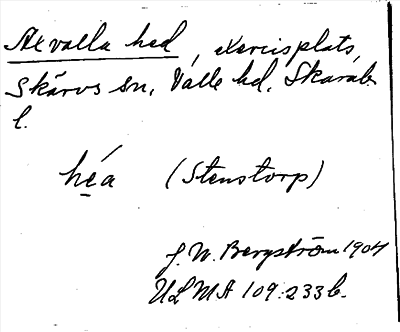 Axvalla hed, exercisplats,
Skärvs sn, Valle hd, Skarab.
l.
hẹ́a (Stenstorp)
J. W. Bergström 1904
ULMA 109:233b.